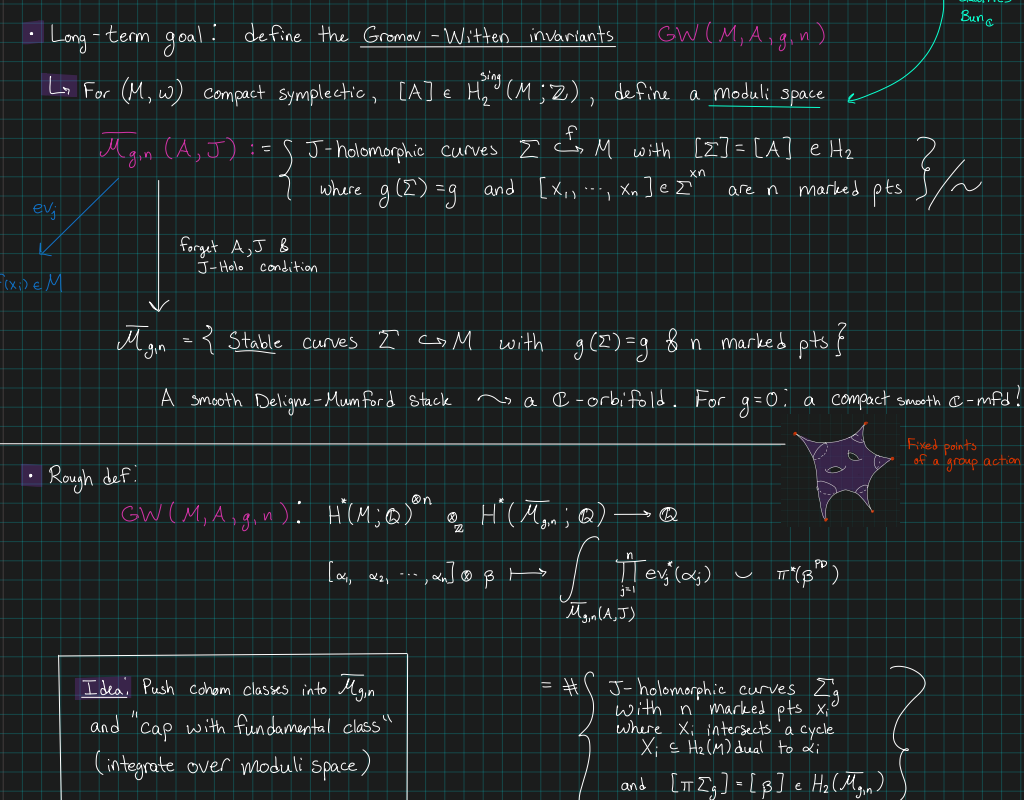 Bun_ℂ
• Long-term goal: define the Gromov-Witten invariants GW(M,A,g,n)
↳ For (M,ω) compact symplectic, [A] ∈ H_2^{sing}(M;ℤ), define a moduli space
\overline{M}_{g,n}(A,J) := { J-holomorphic curves Σ \overset{f}{↪} M with [Σ]=[A] ∈ H_2
where g(Σ)=g and [x_1, ⋯, x_n] ∈ Σ^{×n} are n marked pts } / ~
ev_j
f(x_i) ∈ M
forget A,J &
J-Holo condition
\overline{M}_{g,n} = { Stable curves Σ ↪ M with g(Σ)=g & n marked pts }
A smooth Deligne-Mumford stack ⤳ a ℂ-orbifold. For g=0: a compact smooth ℂ-mfd!
Fixed points
of a group action
• Rough def:
GW(M,A,g,n): H^*(M;ℚ)^{⊗n} ⊗_ℤ H^*(\overline{M}_{g,n};ℚ) ⟶ ℚ
[α_1, α_2, ⋯, α_n] ⊗ β ⟼ ∫_{\overline{M}_{g,n}(A,J)} ∏_{j=1}^{n} ev_j^*(α_j) ⌣ π^*(β^{PD})
Idea: Push cohom classes into \overline{M}_{g,n}
and "cap with fundamental class"
(integrate over moduli space)
= # { J-holomorphic curves Σ_g
with n marked pts x_i
where X_i intersects a cycle
X_i ⊆ H_2(M) dual to α_i
and [πΣ_g] = [β] ∈ H_2(\overline{M}_{g,n}) }